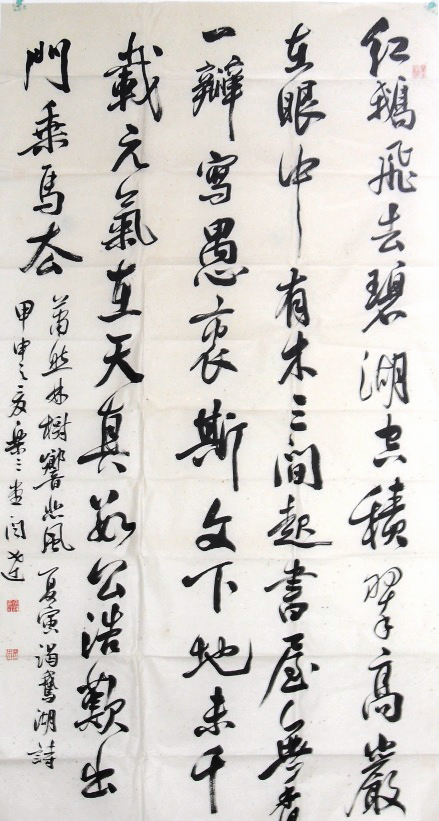 红鵝飛去碧湖空積翠高巖
在眼中有木三間起書屋香
一瓣寫愚衷斯文下地未千
載元氣在天真數公浩歎出
門乘馬去
蕭然林樹響悲風 夏寅謁鵝湖詩
甲申之夏樂三堂